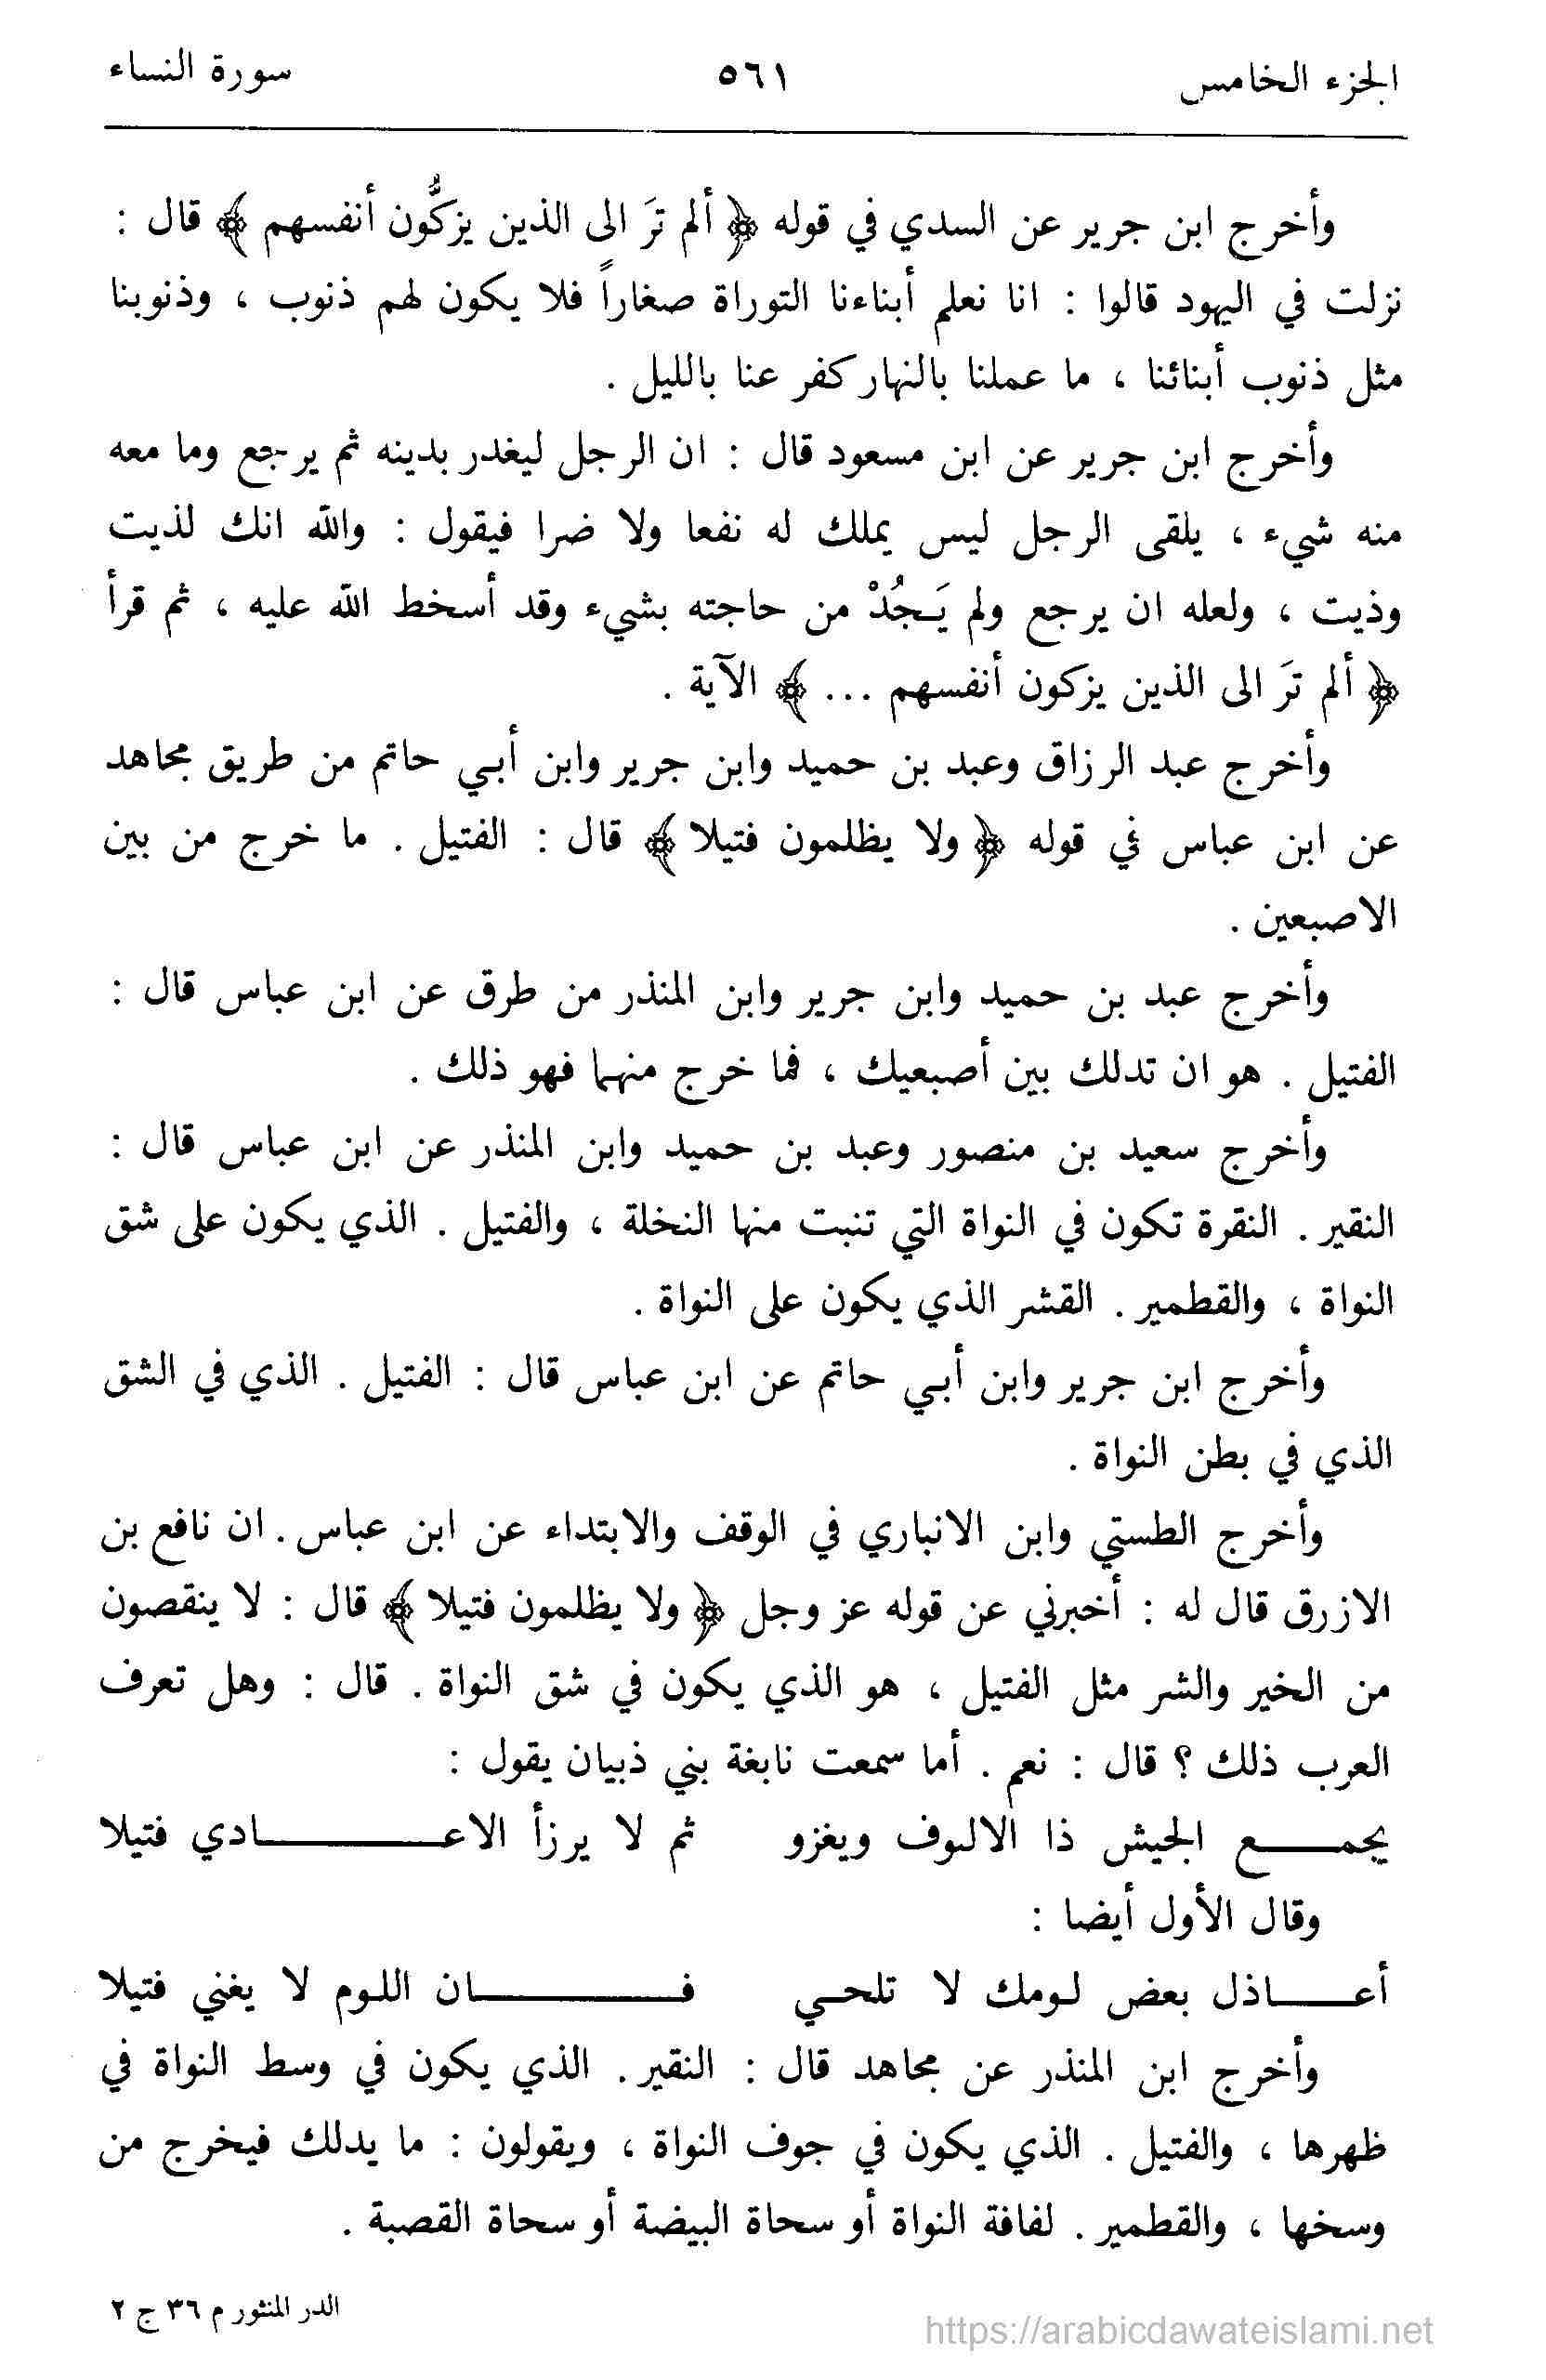 الجزء الخامس ٥٦١ سورة النساء
وأخرج ابن جرير عن السدي في قوله ﴿ ألم ترَ الى الذين يزكُّون أنفسهم ﴾ قال :
نزلت في اليهود قالوا : انا نعلم أبناءنا التوراة صغاراً فلا يكون لهم ذنوب ، وذنوبنا
مثل ذنوب أبنائنا ، ما عملنا بالنهار كفر عنا بالليل .
وأخرج ابن جرير عن ابن مسعود قال : ان الرجل ليغدر بدينه ثم يرجع وما معه
منه شيء ، يلقى الرجل ليس يملك له نفعا ولا ضرا فيقول : والله انك لذيت
وذيت ، ولعله ان يرجع ولم يَـجُدْ من حاجته بشيء وقد أسخط الله عليه ، ثم قرأ
﴿ ألم ترَ الى الذين يزكون أنفسهم ... ﴾ الآية .
وأخرج عبد الرزاق وعبد بن حميد وابن جرير وابن أبـي حاتم من طريق مجاهد
عن ابن عباس في قوله ﴿ ولا يظلمون فتيلا ﴾ قال : الفتيل . ما خرج من بين
الاصبعين .
وأخرج عبد بن حميد وابن جرير وابن المنذر من طرق عن ابن عباس قال :
الفتيل . هو ان تدلك بين أصبعيك ، فما خرج منهما فهو ذلك .
وأخرج سعيد بن منصور وعبد بن حميد وابن المنذر عن ابن عباس قال :
النقير . النقرة تكون في النواة التي تنبت منها النخلة ، والفتيل . الذي يكون على شق
النواة ، والقطمير . القشر الذي يكون على النواة .
وأخرج ابن جرير وابن أبـي حاتم عن ابن عباس قال : الفتيل . الذي في الشق
الذي في بطن النواة .
وأخرج الطستي وابن الانباري في الوقف والابتداء عن ابن عباس . ان نافع بن
الازرق قال له : أخبرني عن قوله عز وجل ﴿ ولا يظلمون فتيلا ﴾ قال : لا ينقصون
من الخير والشر مثل الفتيل ، هو الذي يكون في شق النواة . قال : وهل تعرف
العرب ذلك ؟ قال : نعم . أما سمعت نابغة بني ذبيان يقول :
يجمـــع الجيش ذا الالوف ويغزو ثم لا يرزأ الاعـــــادي فتيلا
وقال الأول أيضا :
أعـــاذل بعض لـومك لا تلحـي فـــــــان اللـوم لا يغني فتيلا
وأخرج ابن المنذر عن مجاهد قال : النقير . الذي يكون في وسط النواة في
ظهرها ، والفتيل . الذي يكون في جوف النواة ، ويقولون : ما يدلك فيخرج من
وسخها ، والقطمير . لفافة النواة أو سحاة البيضة أو سحاة القصبة .
الدر المنثور م ٣٦ ج ٢
https://arabicdawateislami.net